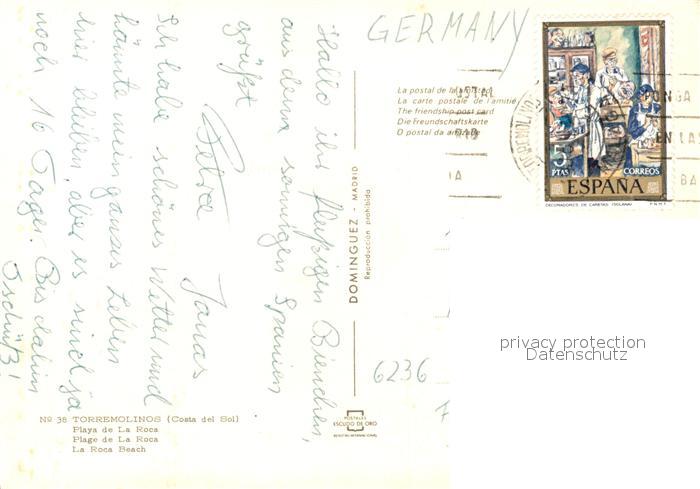 Hallo ihr fleißigen Bienchen,
aus dem sonnigen Spanien
grüßt
Petra Jonas
Ich habe schönes Wetter und
könnte mein ganzes Leben
hier bleiben, aber es sind ja
noch 10 Tage. Bis dahin
Tschüß!
GERMANY
La postal de la amistad
La carte postale de l'amitié
The friendship post card
Die Freundschaftskarte
O postal da amizade
DOMINGUEZ - MADRID
Reproducción prohibida
5
PTAS
CORREOS
ESPAÑA
DECORADORES DE CARETAS (SOLANA)
F.N.M.T.
TORREMOLINOS
PONGA
EN LAS
privacy protection
Datenschutz
6236
Nº 38 TORREMOLINOS (Costa del Sol)
Playa de La Roca
Plage de La Roca
La Roca Beach
POSTALES
ESCUDO DE ORO
REGISTRO INTERNACIONAL